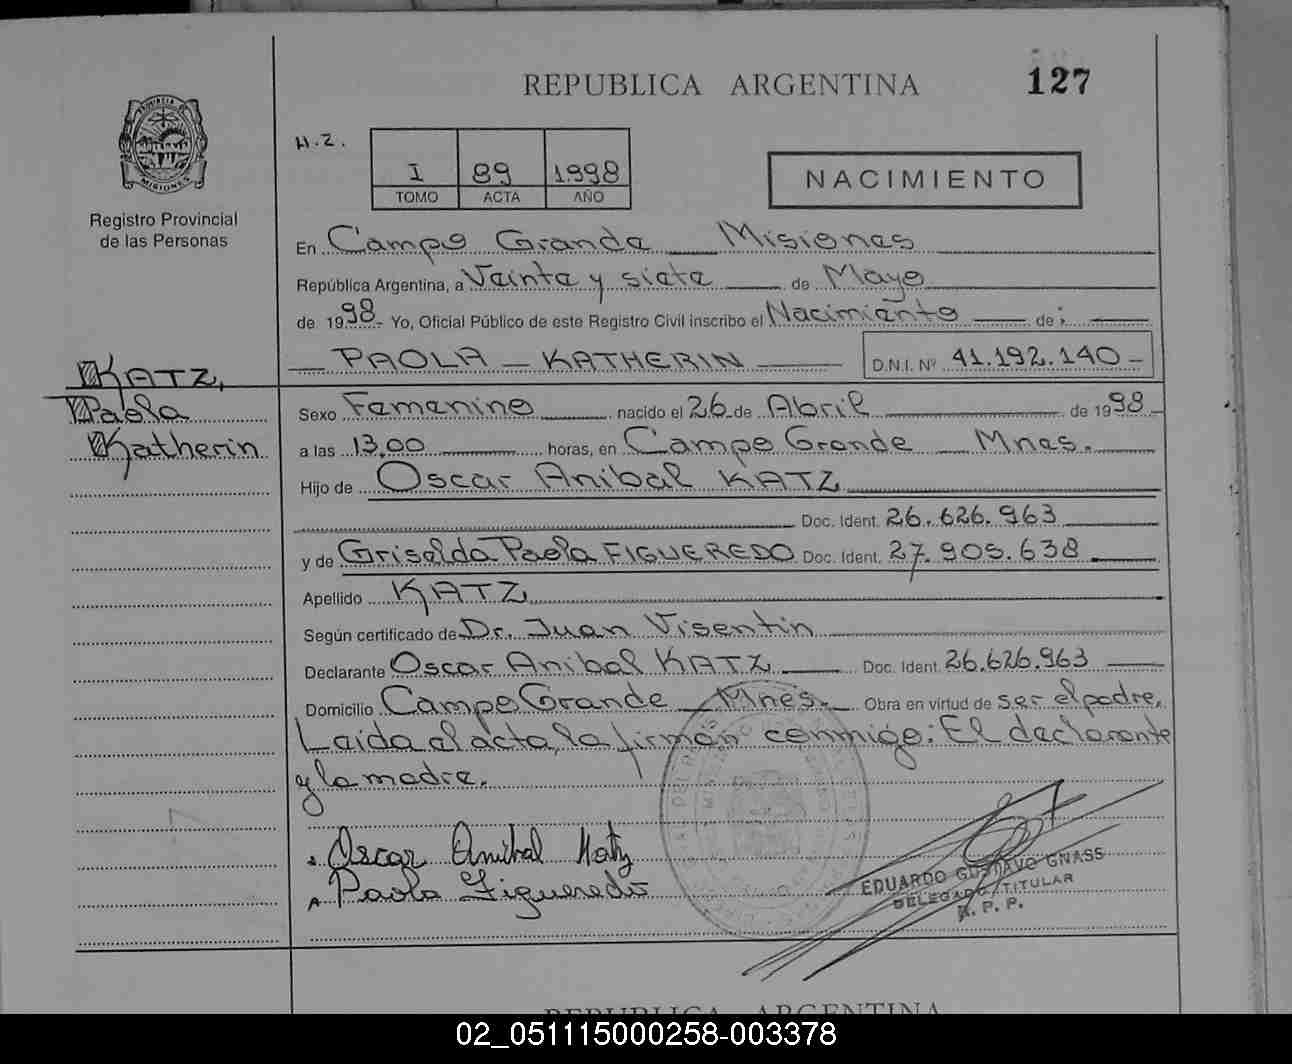 REPUBLICA ARGENTINA
127
PROVINCIA DE
MISIONES
Registro Provincial
de las Personas
H.Z.
I 89 1998
TOMO ACTA AÑO
NACIMIENTO
En Campo Grande Misiones
República Argentina, a Veinte y siete de Mayo
de 1998.- Yo, Oficial Público de este Registro Civil inscribo el Nacimiento de:
PAOLA - KATHERIN D.N.I. Nº 41.192.140-
KATZ,
Paola
Katherin
Sexo Femenino nacido el 26 de Abril de 1998
a las 13,00 horas, en Campo Grande Mnes.
Hijo de Oscar Anibal KATZ
Doc. Ident. 26.626.963
y de Griselda Paola FIGUEREDO Doc. Ident. 27.905.638
Apellido KATZ
Según certificado de Dr. Juan Visentin
Declarante Oscar Anibal KATZ Doc. Ident. 26.626.963
Domicilio Campo Grande Mnes. Obra en virtud de ser el padre.
Leida el acta, la firman conmigo: El declarante
y la madre.
Oscar Anibal Katz
Paola Figueredo
EDUARDO GUSTAVO GNASS
DELEGADO TITULAR
R. P. P.
REPUBLICA ARGENTINA
02_051115000258-003378